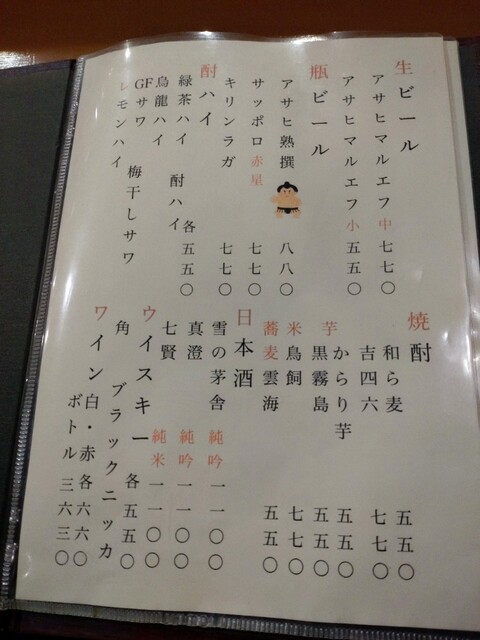 生ビール
アサヒマルエフ 中 七七〇
アサヒマルエフ 小 五五〇
瓶ビール
アサヒ熟撰 八八〇
サッポロ赤星 七七〇
キリンラガー 七七〇
酎ハイ
緑茶ハイ 酎ハイ 各五五〇
烏龍ハイ
GFサワー 梅干しサワー
レモンハイ
焼酎
和ら麦 五五〇
吉四六 七七〇
芋 からり芋 五五〇
黒霧島 五五〇
米 鳥飼 七七〇
蕎麦 雲海 五五〇
日本酒
雪の茅舎 純吟 一一〇〇
真澄 純吟 一一〇〇
七賢 純米 一一〇〇
ウイスキー
角 ブラックニッカ 各五五〇
ワイン 白・赤 各六六〇
ボトル 三六三〇